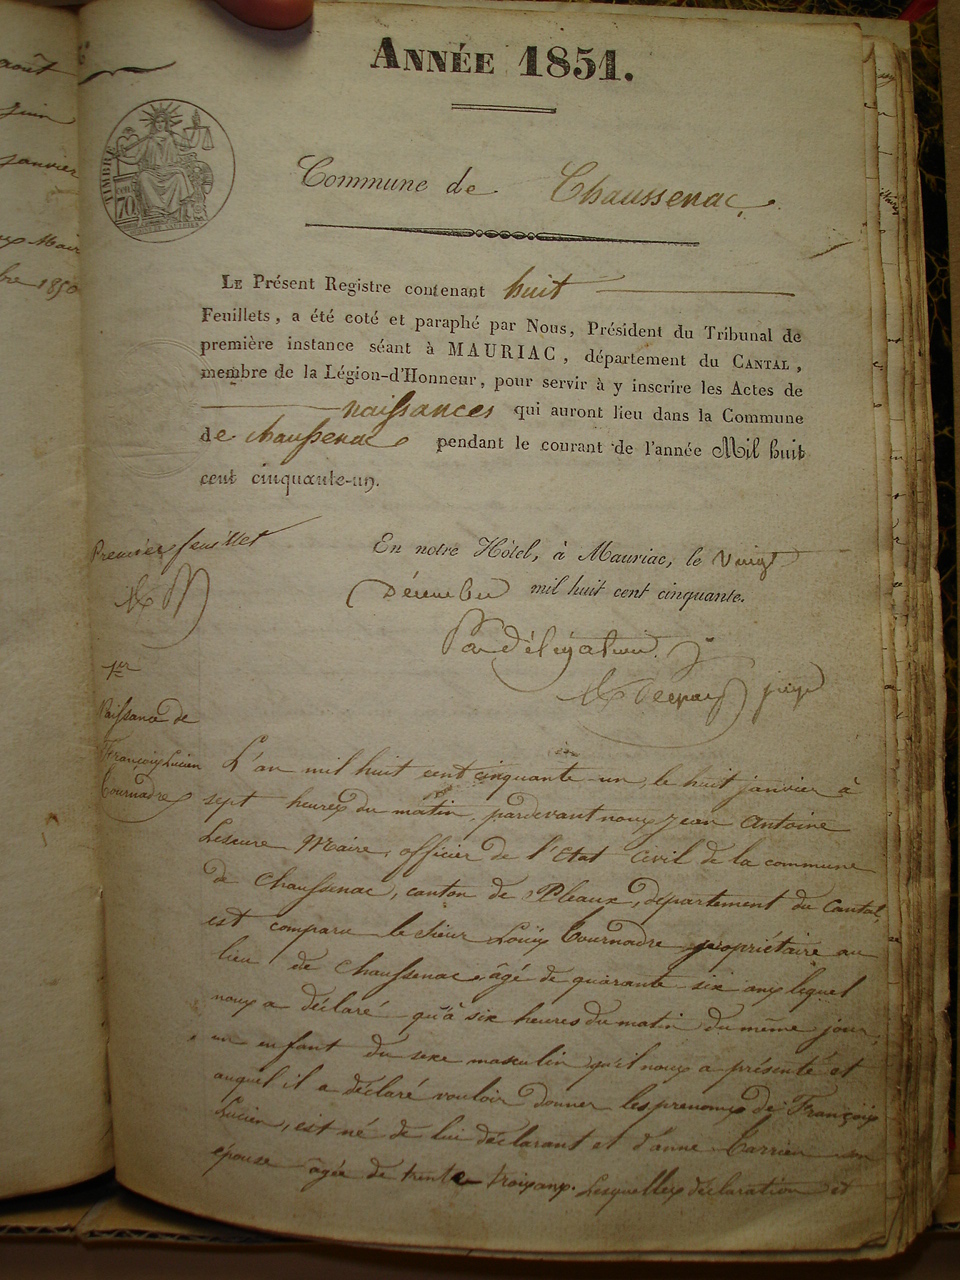 août
juin
janvier
Maire
bre 1850
ANNÉE 1851.
TIMBRE
70
Commune de Chaussenac
LE Présent Registre contenant huit
Feuillets, a été coté et paraphé par Nous, Président du Tribunal de
première instance séant à MAURIAC, département du CANTAL,
membre de la Légion-d'Honneur, pour servir à y inscrire les Actes de
naissances qui auront lieu dans la Commune
de chaussenac pendant le courant de l'année Mil huit
cent cinquante-un.
Premier feuillet
En notre Hôtel, à Mauriac, le vingt
Décembre mil huit cent cinquante.
Par délégation.
juge
1er
Naissance de
François Lucien
Tournadre
L'an mil huit cent cinquante-un, le huit janvier à
sept heures du matin, pardevant nous Jean Antoine
Lescure Maire, officier de l'Etat Civil de la commune
de Chaussenac, canton de Pleaux, département du Cantal,
est comparu le sieur Louis Tournadre propriétaire au
lieu de Chaussenac, âgé de quarante six ans lequel
nous a déclaré qu'à six heures du matin du même jour,
un enfant du sexe masculin qu'il nous a présenté et
auquel il a déclaré vouloir donner les prenoms de François
Lucien, est né de lui déclarant et d'anne son
épouse âgée de trente trois ans. Lesquelles déclaration et